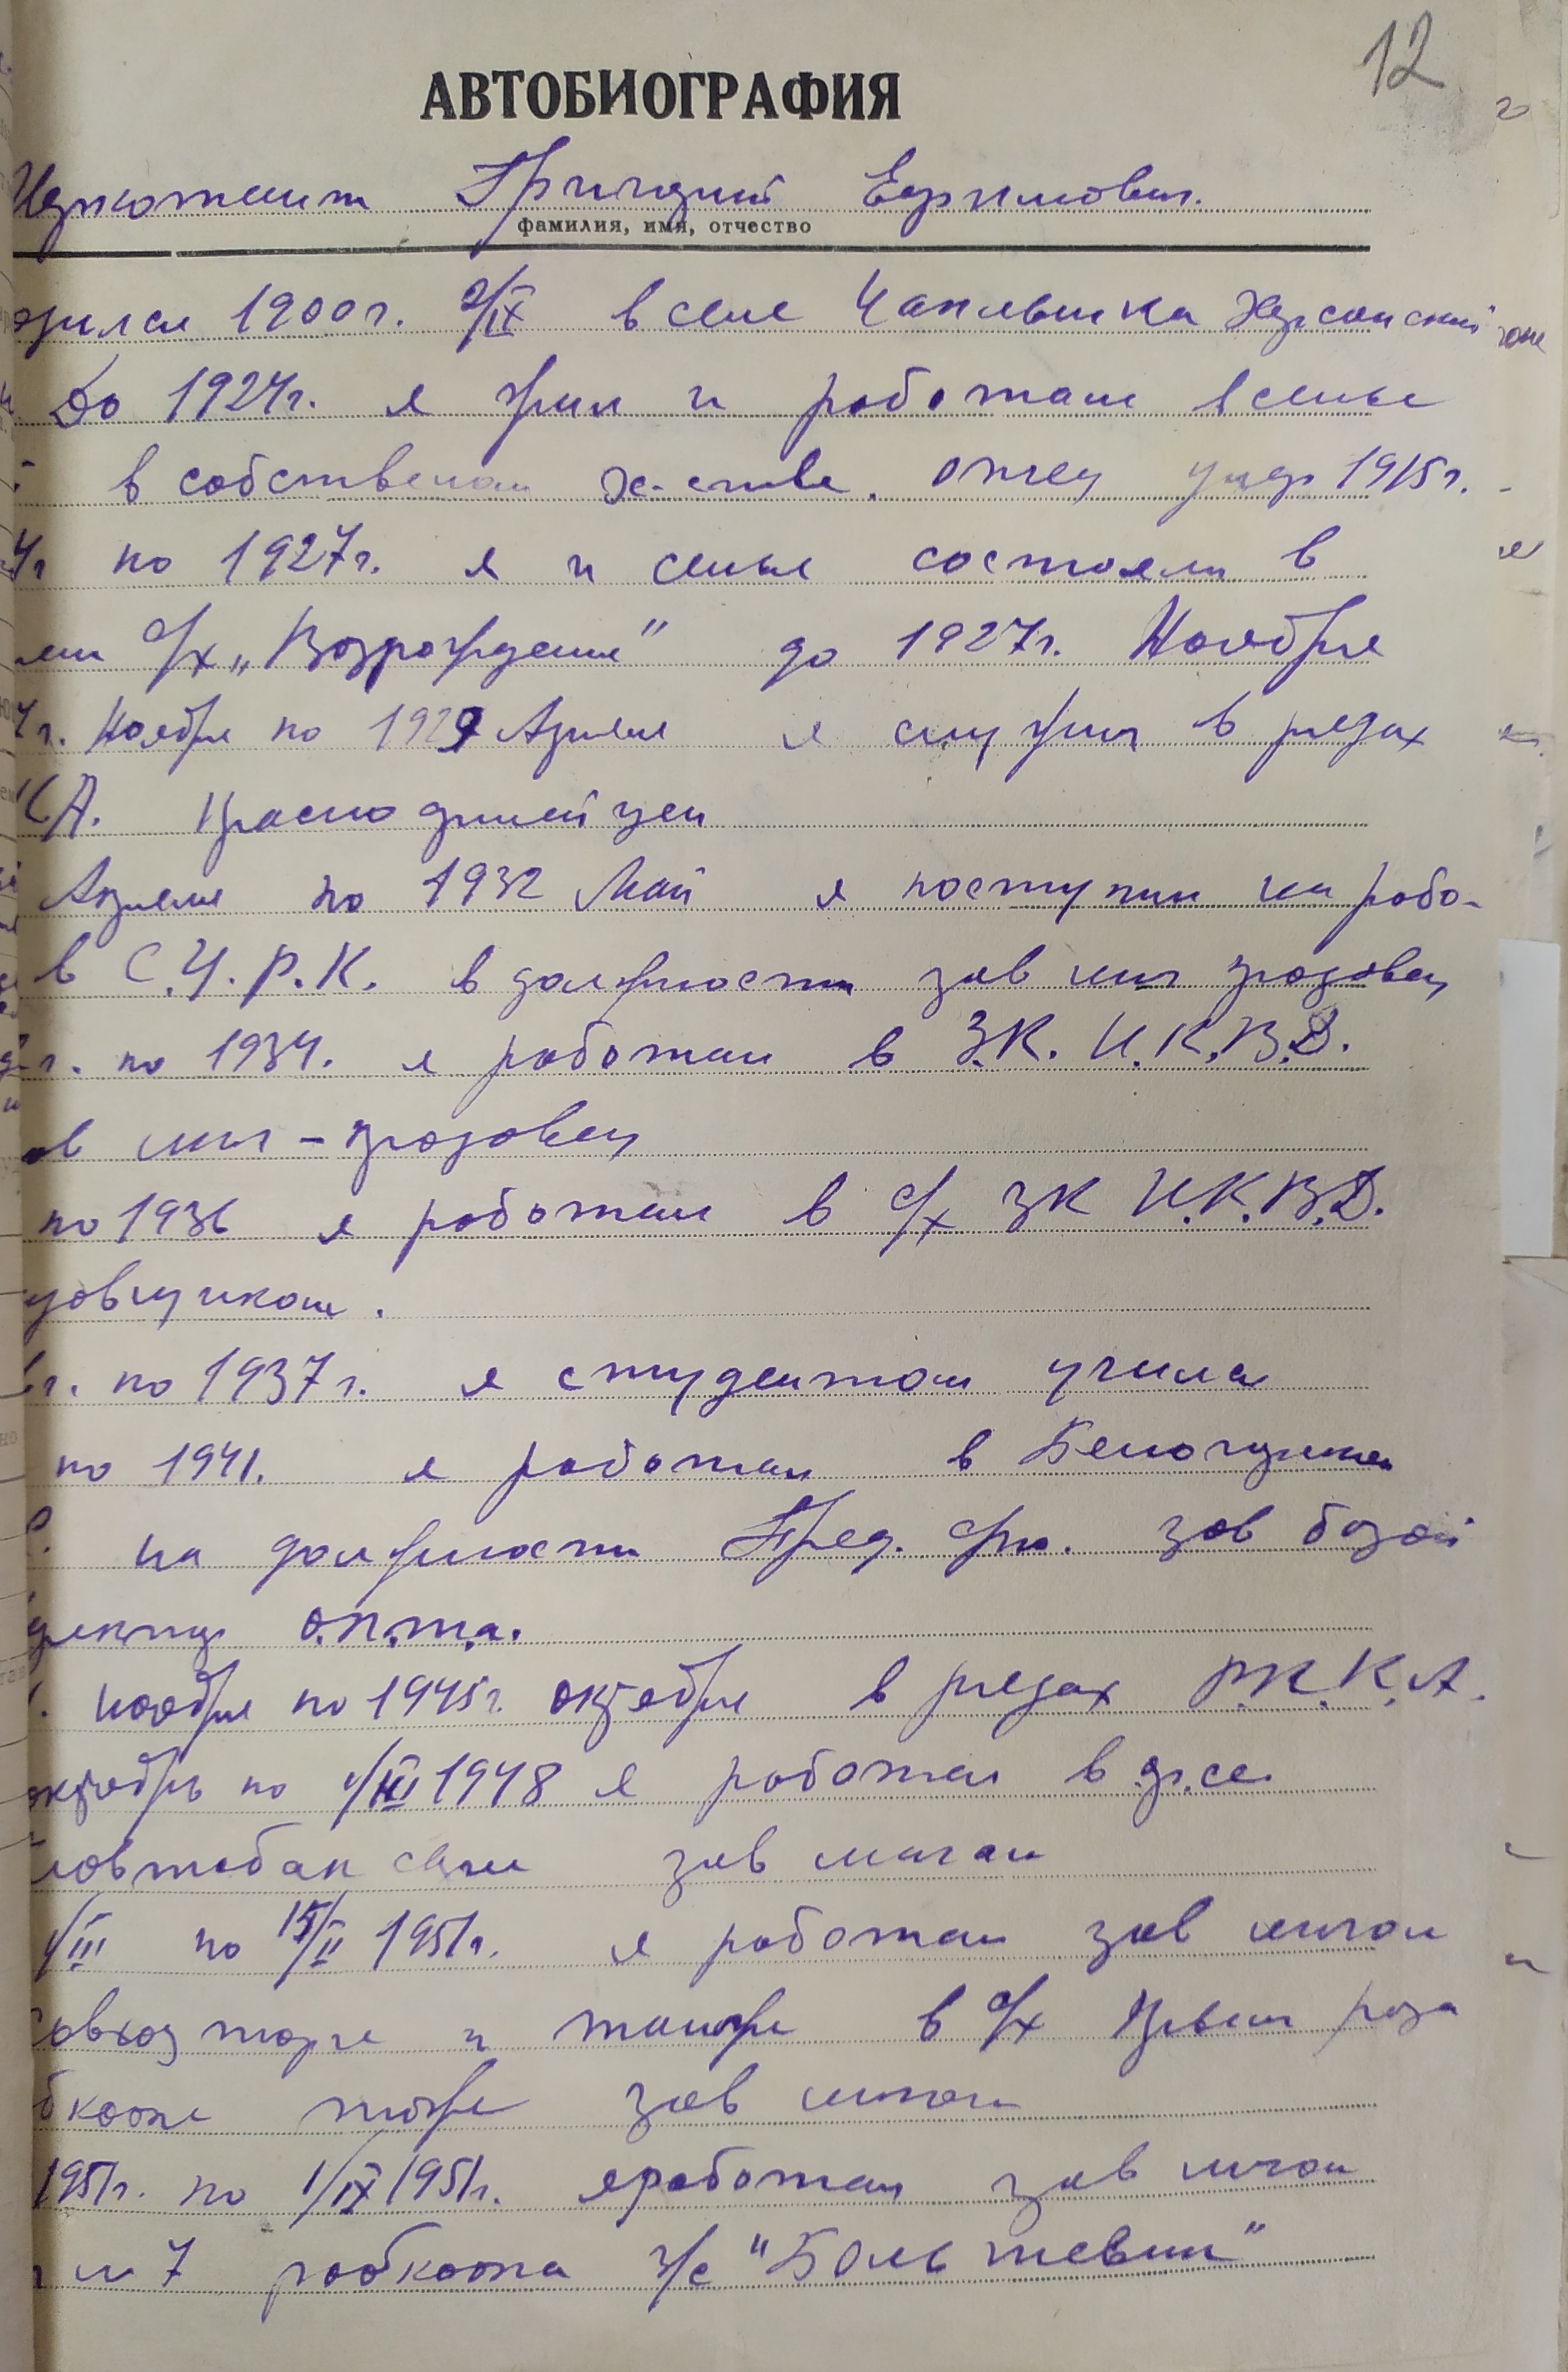 12
АВТОБИОГРАФИЯ
Григорий Ефимович.
фамилия, имя, отчество
1900г. /IX в селе Чаплынка Херсонский
До 1924г. я жил и работал в семье
в собственом х-стве. отец умер 1915г.
4г по 1927г. я и семья состояли в
с/х „Возрождение" до 1927г. Ноября
7г. Ноября по 1929 Апреля я служил в рядах
КА. Красноармейцем
Апреля по 1932 Май я поступил на рабо-
в С.У.Р.К. в должности зав маг продовец
г. по 1934. я работал в З.К. Н.К.В.Д.
ав маг - продовец
по 1936 я работал в с/х ЗК Н.К.В.Д.
довщиком.
г. по 1937г. я студентом училса
по 1941. я работал в
на должности Пред. зав базой
О.П.т.а.
ноября по 1945г. октября в рядах Р.К.К.А.
октябрь по 1/III 1948 я работал в
зав магом
1/III по 15/II 1951г. я работал зав магом
совхоз торге и тоже в с/х роза
бкоопе тоже зав магом
1951г. по 1/IX 1951г. я работал зав магом
м 7 рабкоопа з/с "Большевик"